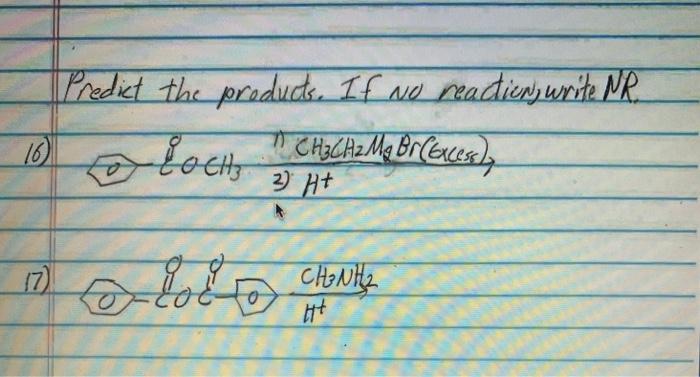 Predict the products. If NO reaction, write NR.
16) O COCH3 1) CH3CH2MgBr(Excess)
2) H+
17) O O COC CH3NH2
H+